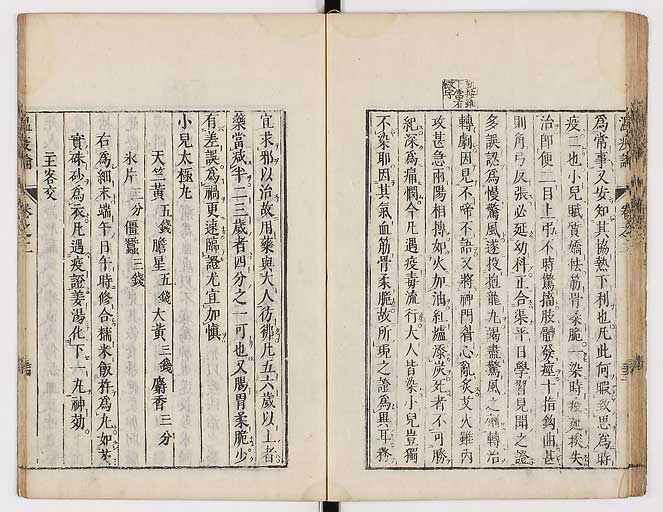 為常事又安知其協熱下利也凡此何暇致思為時
疫二也小兒賦質嬌怯筋骨柔脆一染時疫延挨失
治即便二目上弔不時驚搐肢體發痙十指鈎曲甚
則角弓反張必延幼科正合渠平日學習見聞之證
多誤認為慢驚風遂投抱龍丸竭盡驚風之劑轉治
轉劇因見不啼不語又將神門眷心亂炙艾火雖內
攻甚急兩陽相摶如火加油紅爐添炭死者不可勝
紀深為痛憫今凡遇疫毒流行大人皆染小兒豈獨
不染耶因其氣血筋骨柔脆故所現之證為異耳務
宜求邪以治故用藥與大人彷彿凡五六歲以上者
藥當減半二三歲者四分之一可也又腸胃柔脆少
有差誤為禍更速臨證尤宜加慎
小兒太極丸
天竺黃五錢膽星五錢大黃三錢麝香三分
氷片二分僵蠶三錢
右為細末端午日午時修合糯米飯杵為丸如芡
實硃砂為衣凡遇疫證姜湯化下一丸神効
主客交
瘟疫論 卷之二